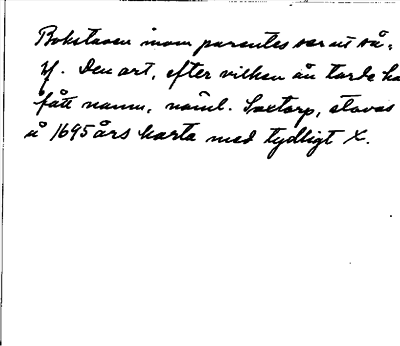 Bokstaven inom parentes ser ut så:
Y. Den art, efter vilken ån torde ha
fått namn, näml. Saxtorp, stavas
å 1695 års karta med tydligt X.